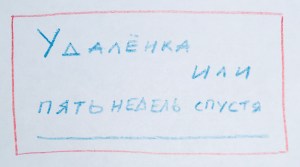 Удалёнка
или
пять недель спустя